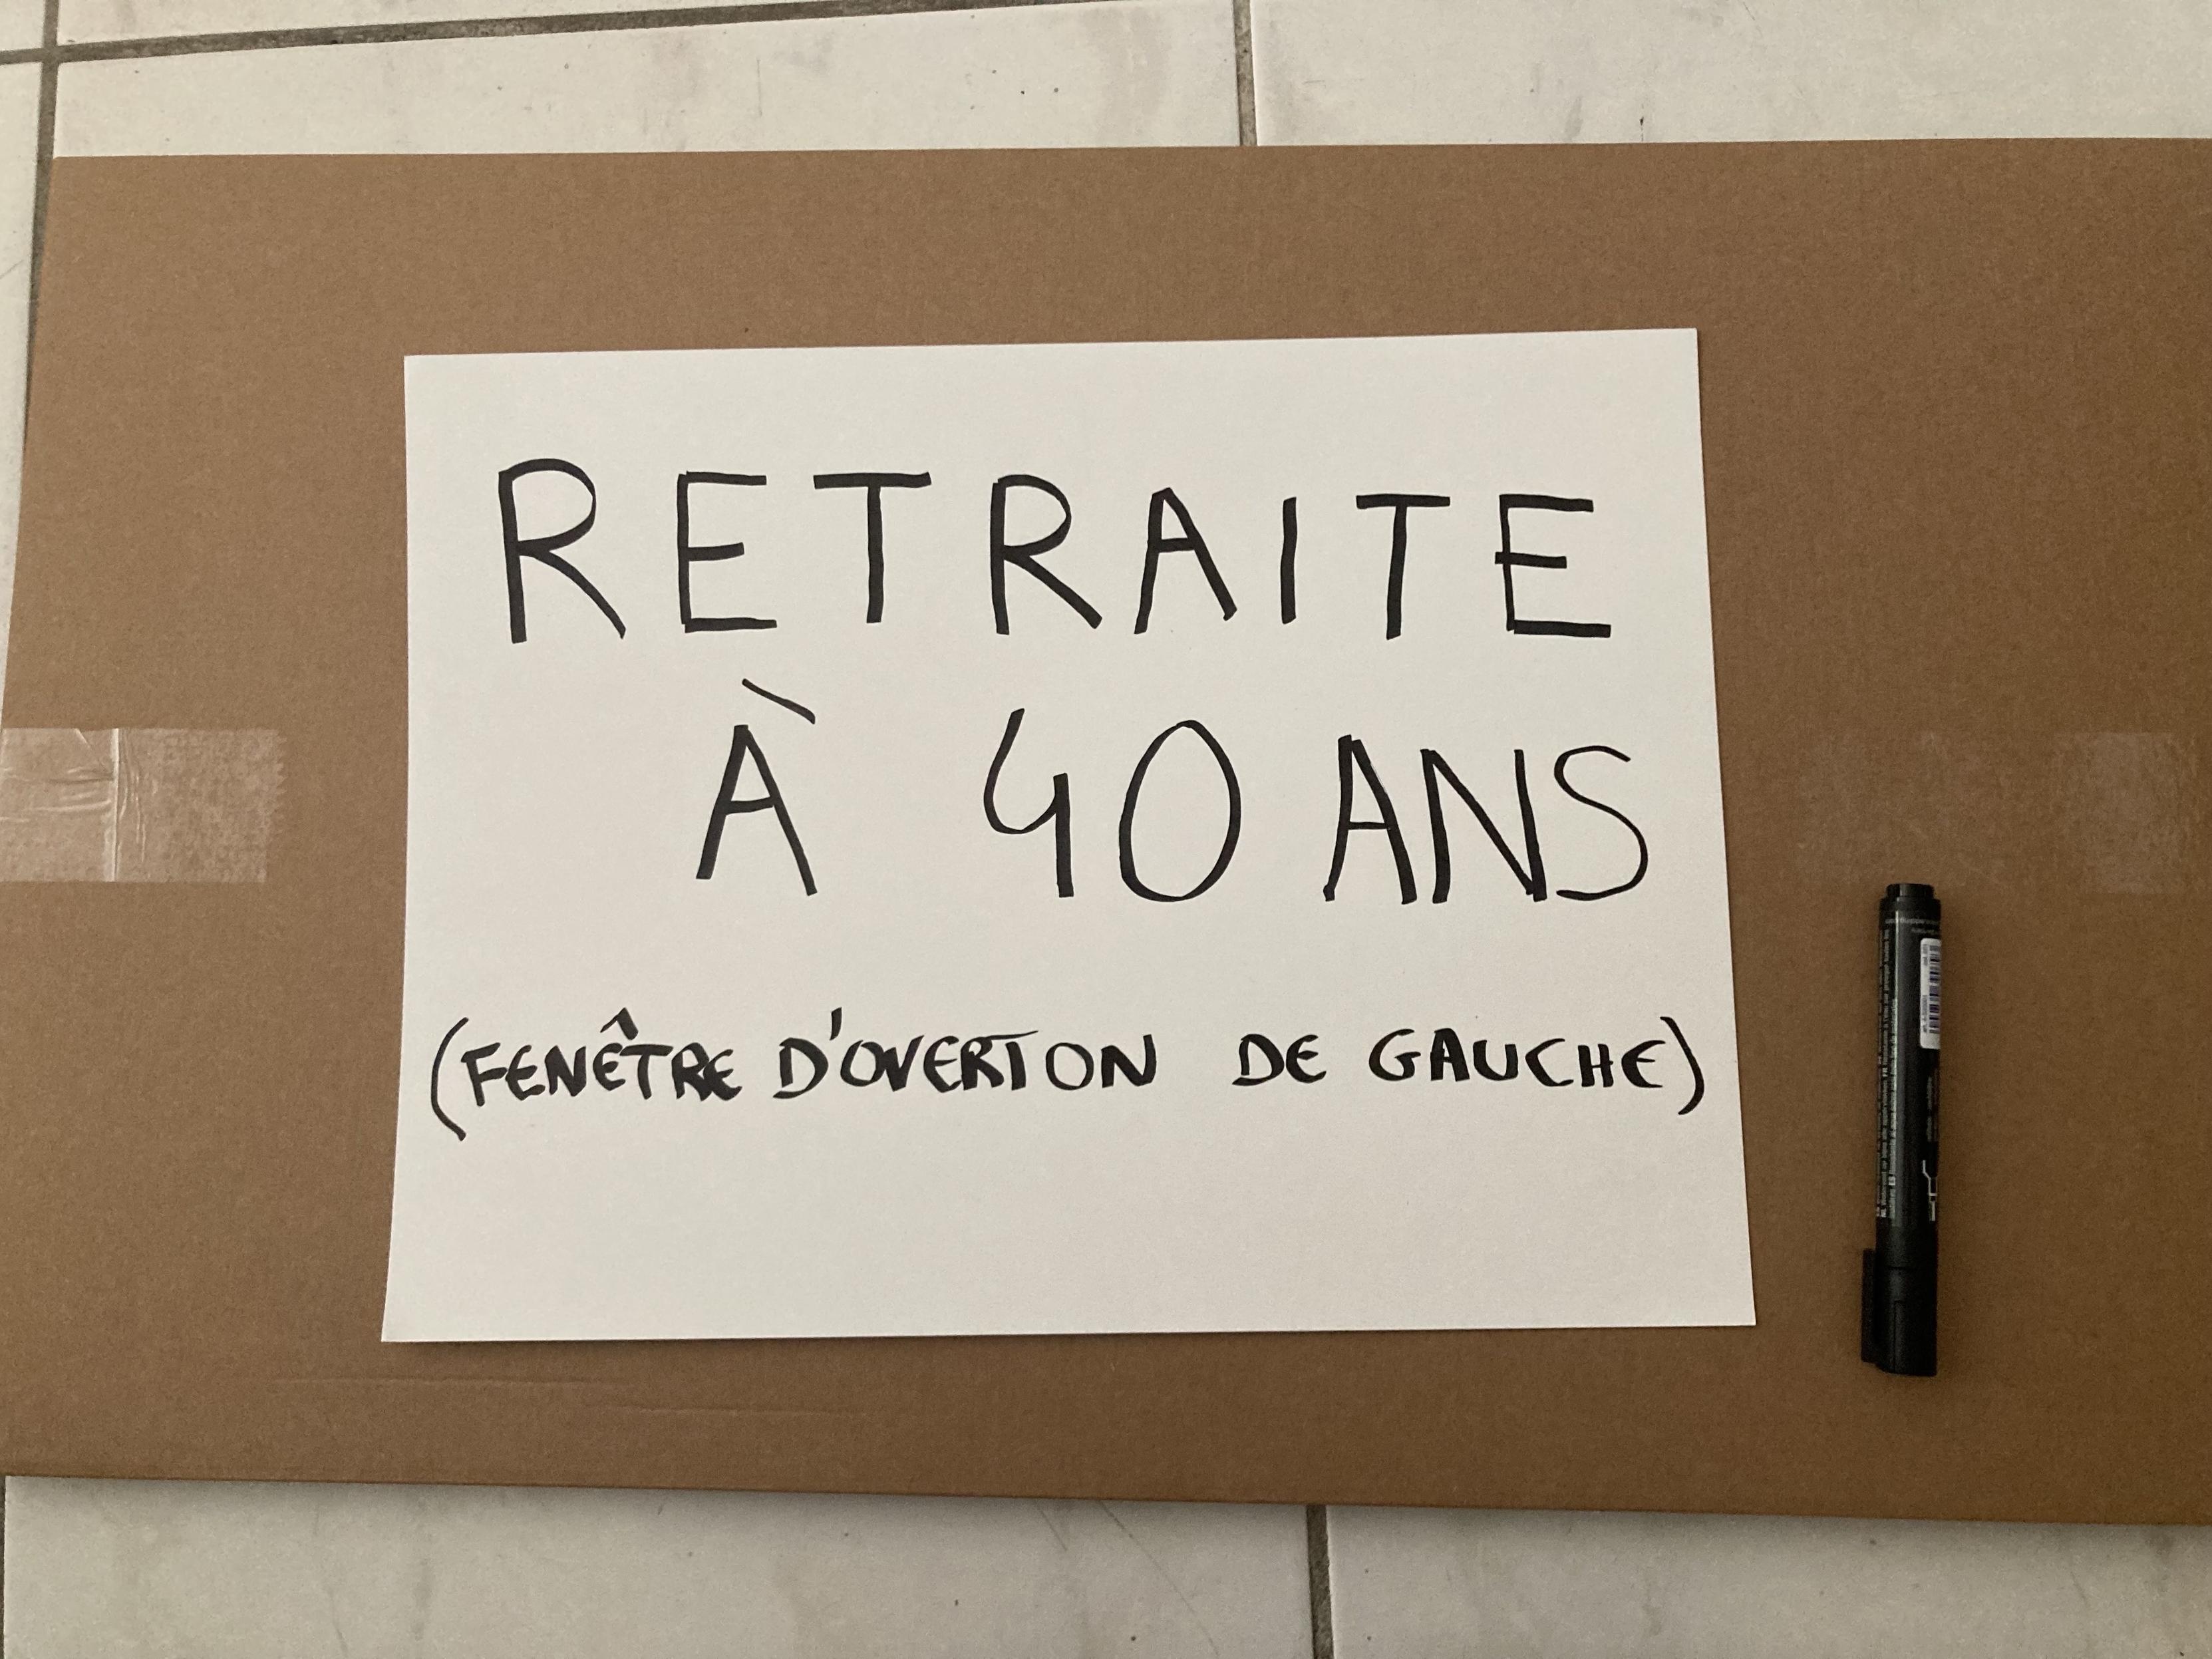 RETRAITE
À 40 ANS
(FENÊTRE D'OVERTON DE GAUCHE)